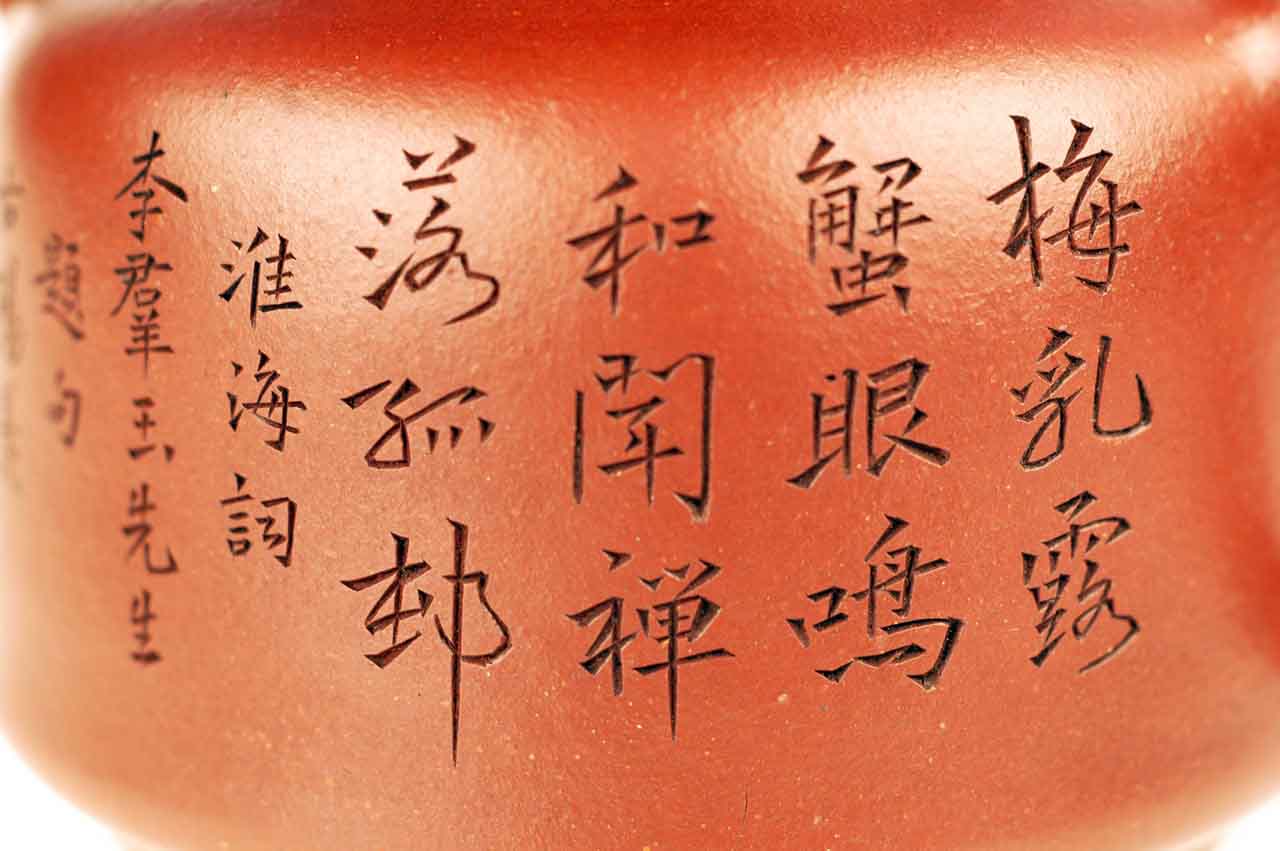 梅乳露
蟹眼鳴
和閑禅
落孤邨
淮海詞
李君羊玉先生
題句